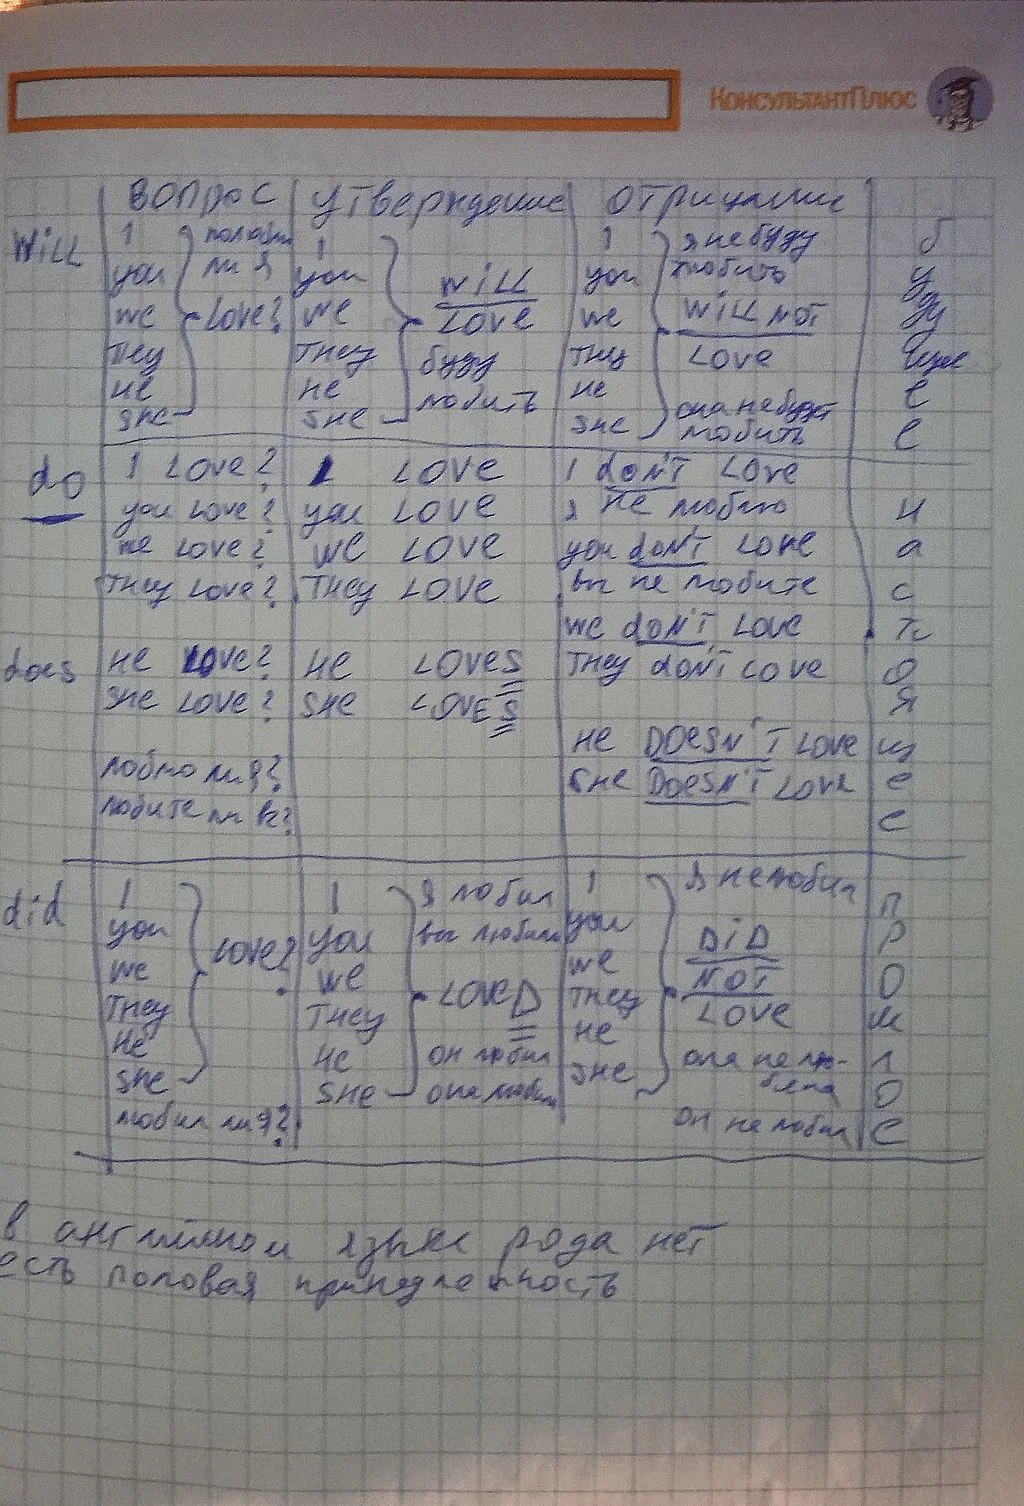 КОНСУЛЬТАНТПЛЮС
ВОПРОС УТВЕРЖДЕНИЕ ОТРИЦАНИЕ
WILL I I I я не буду
you ли я you WILL you любить
we LOVE? WE LOVE WE WILL NOT
They THEY буду THEY LOVE
HE HE любить HE она не будет
SHE SHE SHE любить
будущее
do I LOVE? I LOVE I DON'T LOVE
you LOVE? you LOVE я НЕ люблю
WE LOVE? WE LOVE you DON'T LOVE
THEY LOVE? THEY LOVE вы не любите
WE DON'T LOVE
does HE LOVE? HE LOVES THEY DON'T LOVE
SHE LOVE? SHE LOVES
HE DOESN'T LOVE
люблю ли я? SHE DOESN'T LOVE
любите ли вы?
настоящее
did I I Я любил I Я не любил
you you вы любили you DID
WE LOVE? WE LOVED WE NOT
THEY THEY THEY LOVE
HE HE он любил HE она не лю-
SHE SHE она любила SHE била
любил ли я? он не любил
прошлое
в английском языке рода нет
есть половая принадлежность